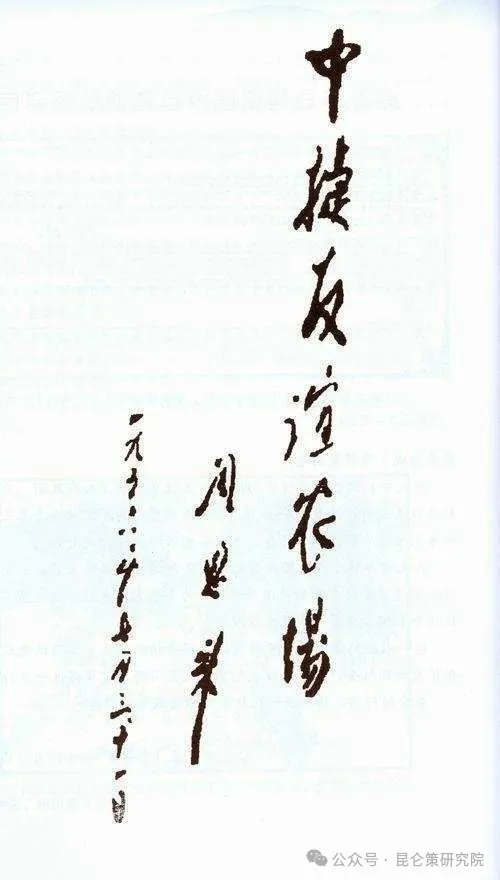 中捷友谊农場
周恩来
一九五六年七月三十一日
公众号·昆仑策研究院